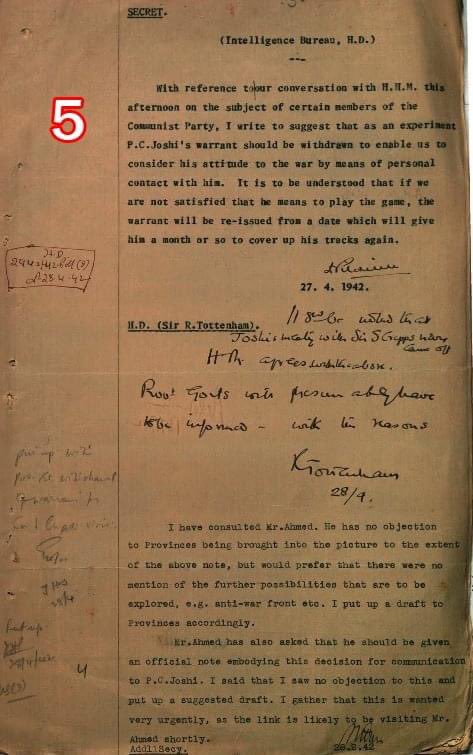 SECRET.
(Intelligence Bureau, H.D.)
---
With reference to our conversation with H.H.M. this
afternoon on the subject of certain members of the
Communist Party, I write to suggest that as an experiment
P.C.Joshi's warrant should be withdrawn to enable us to
consider his attitude to the war by means of personal
contact with him. It is to be understood that if we
are not satisfied that he means to play the game, the
warrant will be re-issued from a date which will give
him a month or so to cover up his tracks again.
5
H.D
27. 4. 1942.
H.D. (Sir R.Tottenham).
It noted that
Joshi's meeting with Sir S Cripps never
came off
H.M. agrees with the above.
Govts will presumably have
to be informed - with the reasons
RTottenham
28/4.
I have consulted Mr.Ahmed. He has no objection
to Provinces being brought into the picture to the extent
of the above note, but would prefer that there were no
mention of the further possibilities that are to be
explored, e.g. anti-war front etc. I put up a draft to
Provinces accordingly.
Mr.Ahmed has also asked that he should be given
an official note embodying this decision for communication
to P.C.Joshi. I said that I saw no objection to this and
put up a suggested draft. I gather that this is wanted
very urgently, as the link is likely to be visiting Mr.
Ahmed shortly.
Addl:Secy.
4